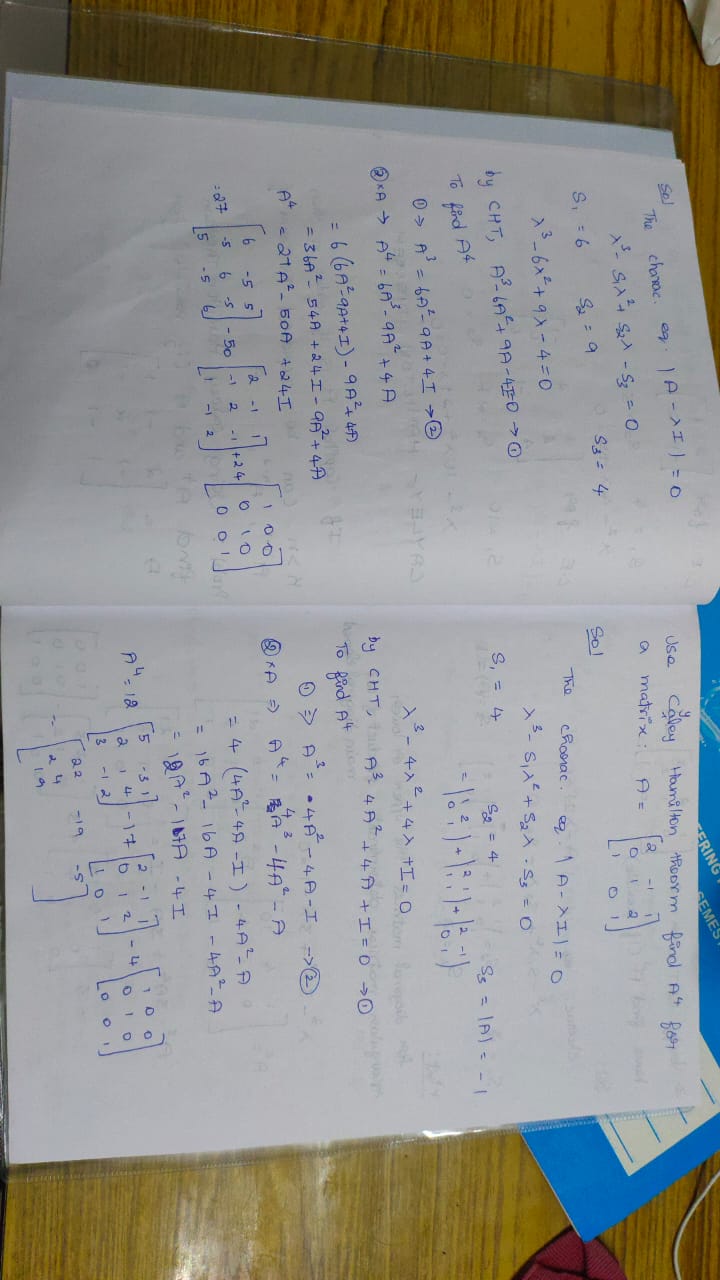 Sol
The charac. eq. |A - λI| = 0
λ³ - S₁λ² + S₂λ - S₃ = 0
S₁ = 6 S₂ = 9 S₃ = 4
λ³ - 6λ² + 9λ - 4 = 0
by CHT, A³ - 6A² + 9A - 4I = 0 → ①
To find A⁴
① ⇒ A³ = 6A² - 9A + 4I → ②
② × A ⇒ A⁴ = 6A³ - 9A² + 4A
= 6 (6A² - 9A + 4I) - 9A² + 4A
= 36A² - 54A + 24I - 9A² + 4A
A⁴ = 27A² - 50A + 24I
6 -5 5 2 -1 1 1 0 0
= 27 -5 6 -5 - 50 -1 2 -1 + 24 0 1 0
5 -5 6 1 -1 2 0 0 1
EERING
SEMES
Use Caley y Hamilton theorm find A⁴ for
2 -1 1
a matrix: A = 0 1 2
1 0 1
Sol
The charac. eq. |A - λI| = 0
λ³ - S₁λ² + S₂λ - S₃ = 0
S₁ = 4 S₂ = 4 S₃ = |A| = -1
= |1 2| + |2 1| + |2 -1|
|0 1| |1 1| |0 1|
λ³ - 4λ² + 4λ + I = 0
by CHT, A³ 4A² + 4A + I = 0 → ①
To find A⁴
① ⇒ A³ = 4A² - 4A - I → ②
② × A ⇒ A⁴ = 4A³ - 4A² - A
= 4 (4A² - 4A - I) - 4A² - A
= 16A² - 16A - 4I - 4A² - A
= 12A² - 17A - 4I
5 -3 1 2 -1 1 1 0 0
A⁴ = 12 2 1 4 - 17 0 1 2 - 4 0 1 0
3 -1 2 1 0 1 0 0 1
22 -19 -5
24
19